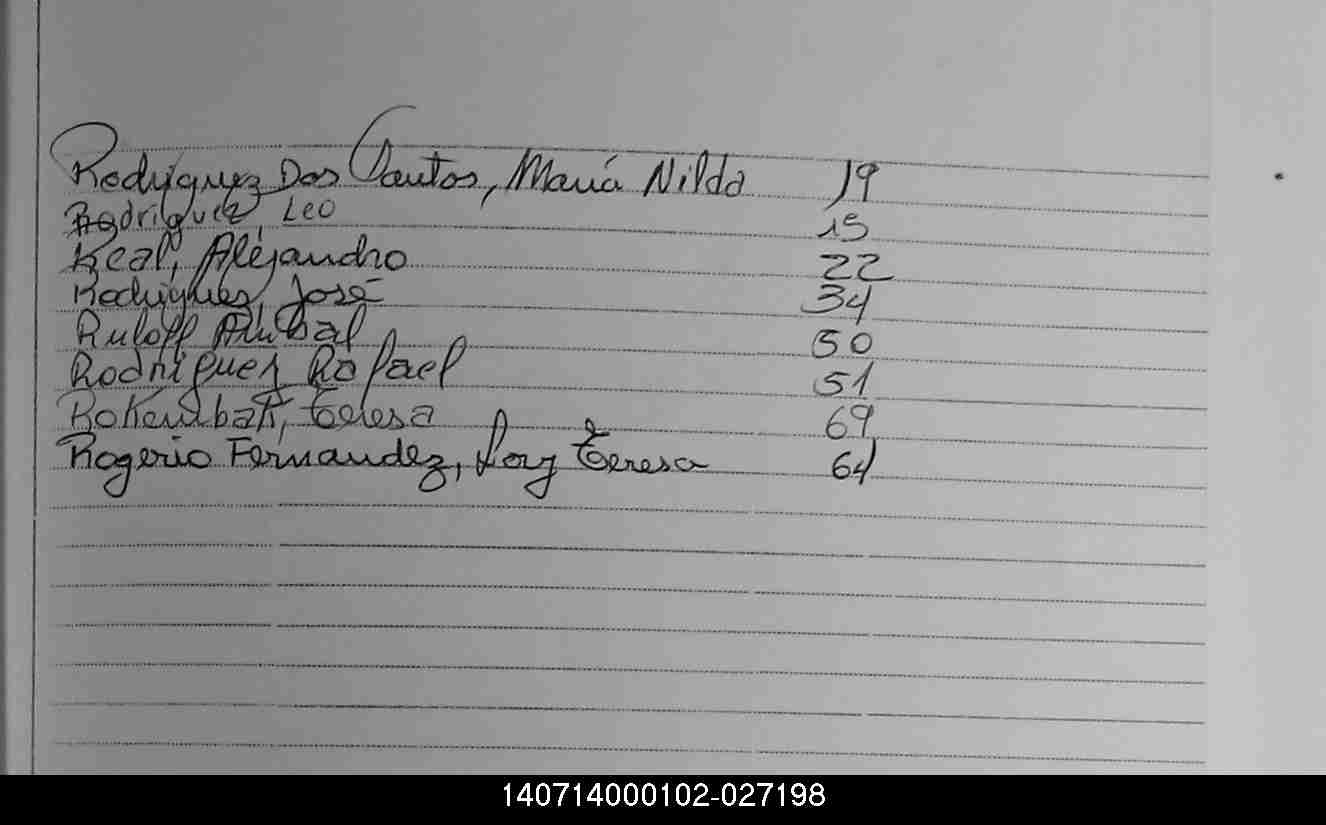 Rodriguez Dos Santos, María Nilda 19
Rodriguez, Leo 15
Real, Alejandro 22
Rodriguez, José 34
Ruloff Anibal 50
Rodriguez Rafael 51
Teresa 69
Rogerio Fernandez, Teresa 64
140714000102-027198